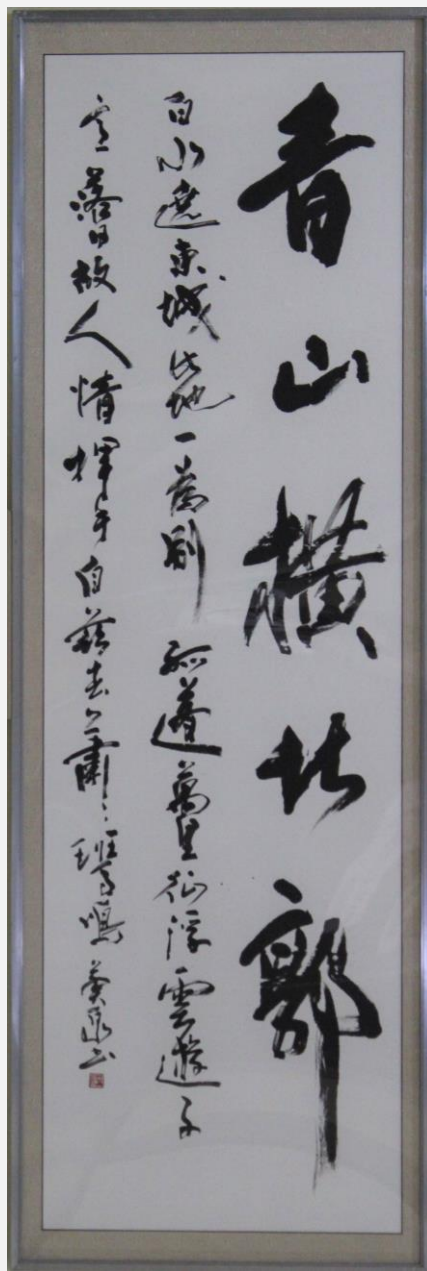 青山橫北郭
白水遶東城此地一為別孤蓬萬里征浮雲遊子
意落日故人情揮手自茲去蕭〻班馬鳴 書